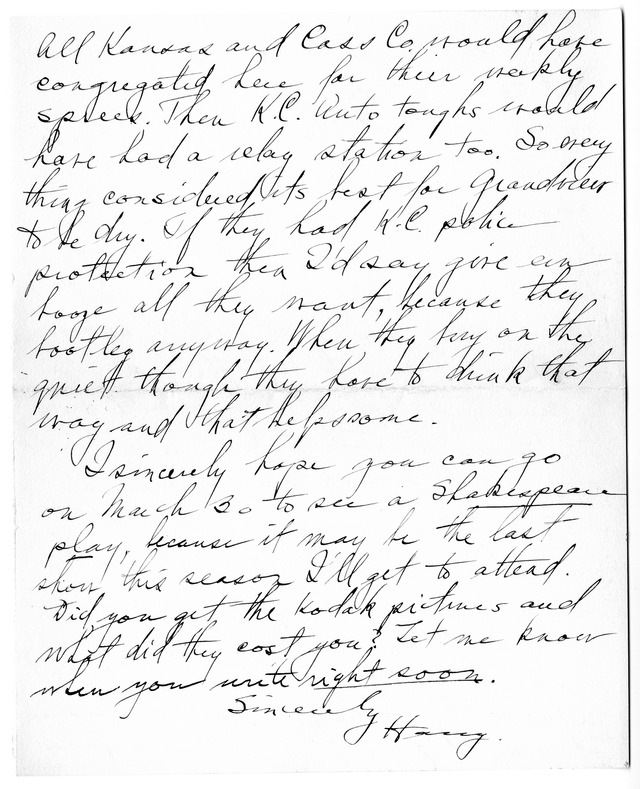 All Kansas and Cass Co. would have
congregated here for their weekly
sprees. Then K.C. Auto toughs would
have had a relay station too. So every
thing considered its best for Grandview
to be dry. If they had K.C. police
protection then I'd say give em
booze all they want, because they
bootleg anyway. When they buy on the
quiet though they have to drink that
way and that helps some.
I sincerely hope you can go
on March 30 to see a Shakespeare
play, because it may be the last
show this season I'll get to attend.
Did you get the Kodak pictures and
what did they cost you? Let me know
when you write right soon.
Sincerely
Harry.